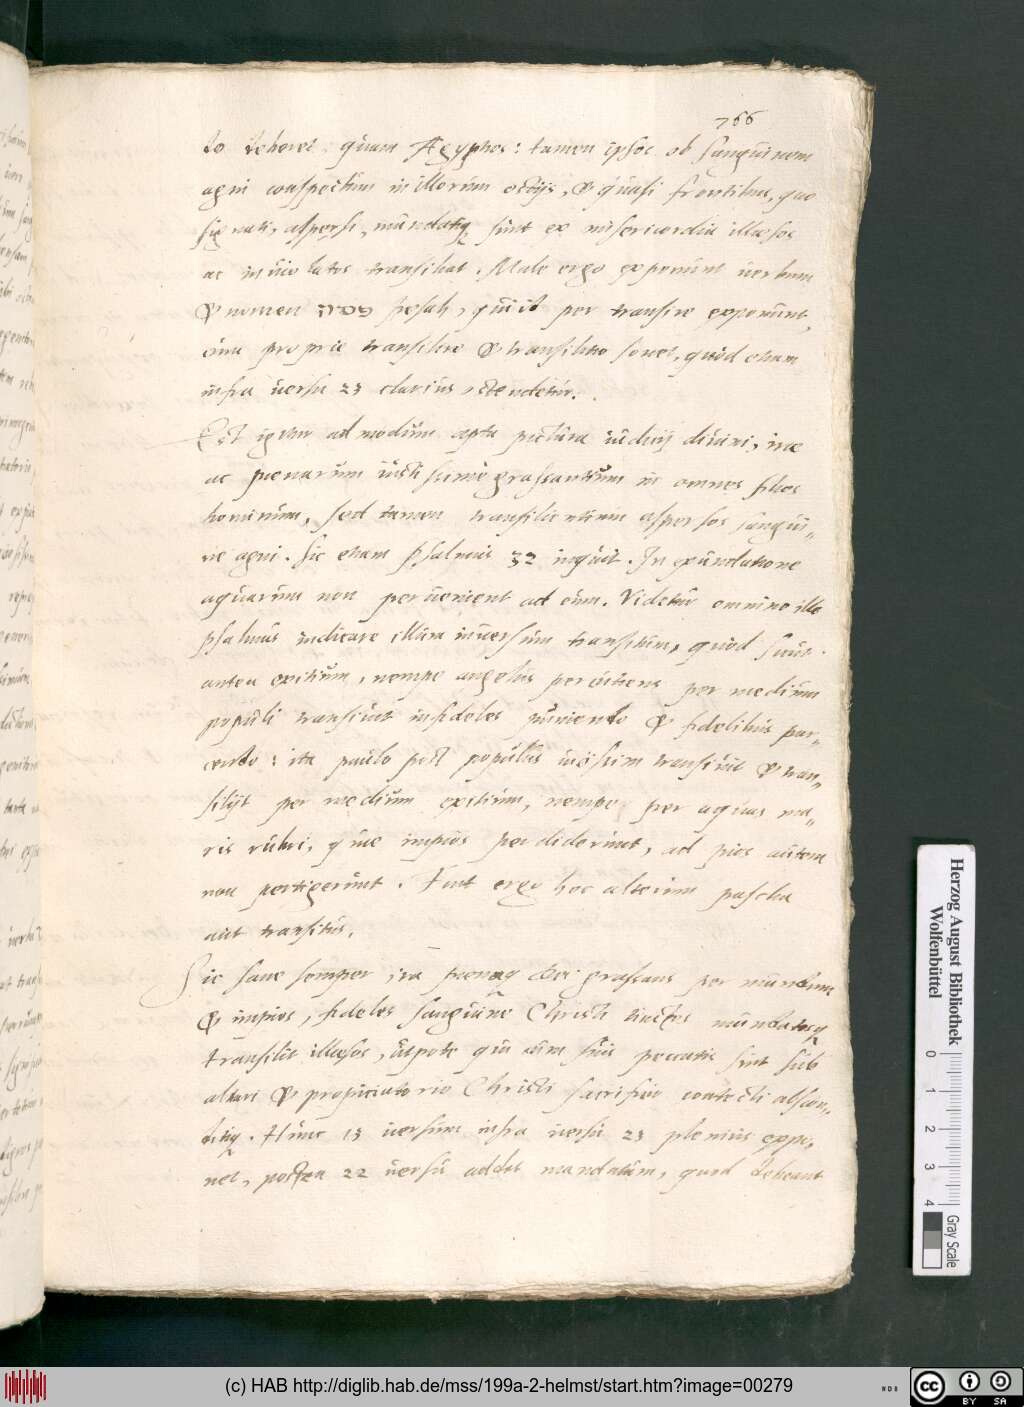 766
to deberet quam Ægyptios: tamen ipsos ob sanguinem
agni conspectum in illorum ostijs, & quasi frontibus, quo
signati, aspersi, mundatiq sunt ex misericordia illæsos
ac inviolatos transibat. Male ergo exponunt verbum
& nomen פסח pesah, qui id per transire exponunt,
cum proprie transilire & transilitio sonet, quod etiam
infra versu 23 clarius ostendetur.
Est igitur ad modum apta pictura iudicij divini, iræ
ac poenarum iustissime grassantium in omnes filios
hominum, sed tamen transilientium aspersos sangui„
ne agni. Sic etiam psalmus 32 inquit. In exundatione
aquarum non pervenient ad eum. Videtur omnino ille
psalmus indicare illum inversum transitum, quod sicut
antea exitium, nempe angelus percutiens per medium
populi transivit infideles puniendo & fidelibus par„
cendo: ita paulo post populus vicissim transivit & tran„
silijt per medium exitium, nempe per aquas ma„
ris rubri, quæ impios perdiderunt, ad pios autem
non pertigerunt. Fuit ergo hoc alterum pascha
aut transitus.
Sic sane semper ira poenaq Dei grassans per mundum
& impios, fideles sanguine Christi tinctos mundatosq
transilit illæsos, utpote qui cum suis peccatis sint sub
altari & propiciatorio Christi sacrificio contecti abscon„
ditiq. Hunc 13 versum infra versu 23 plenius expo„
net, postea 22 versu addet mandatum, quod debeant
Herzog August Bibliothek
Wolfenbüttel
0 1 2 3 4
Gray Scale
(c) HAB http://diglib.hab.de/mss/199a-2-helmst/start.htm?image=00279
cc BY SA